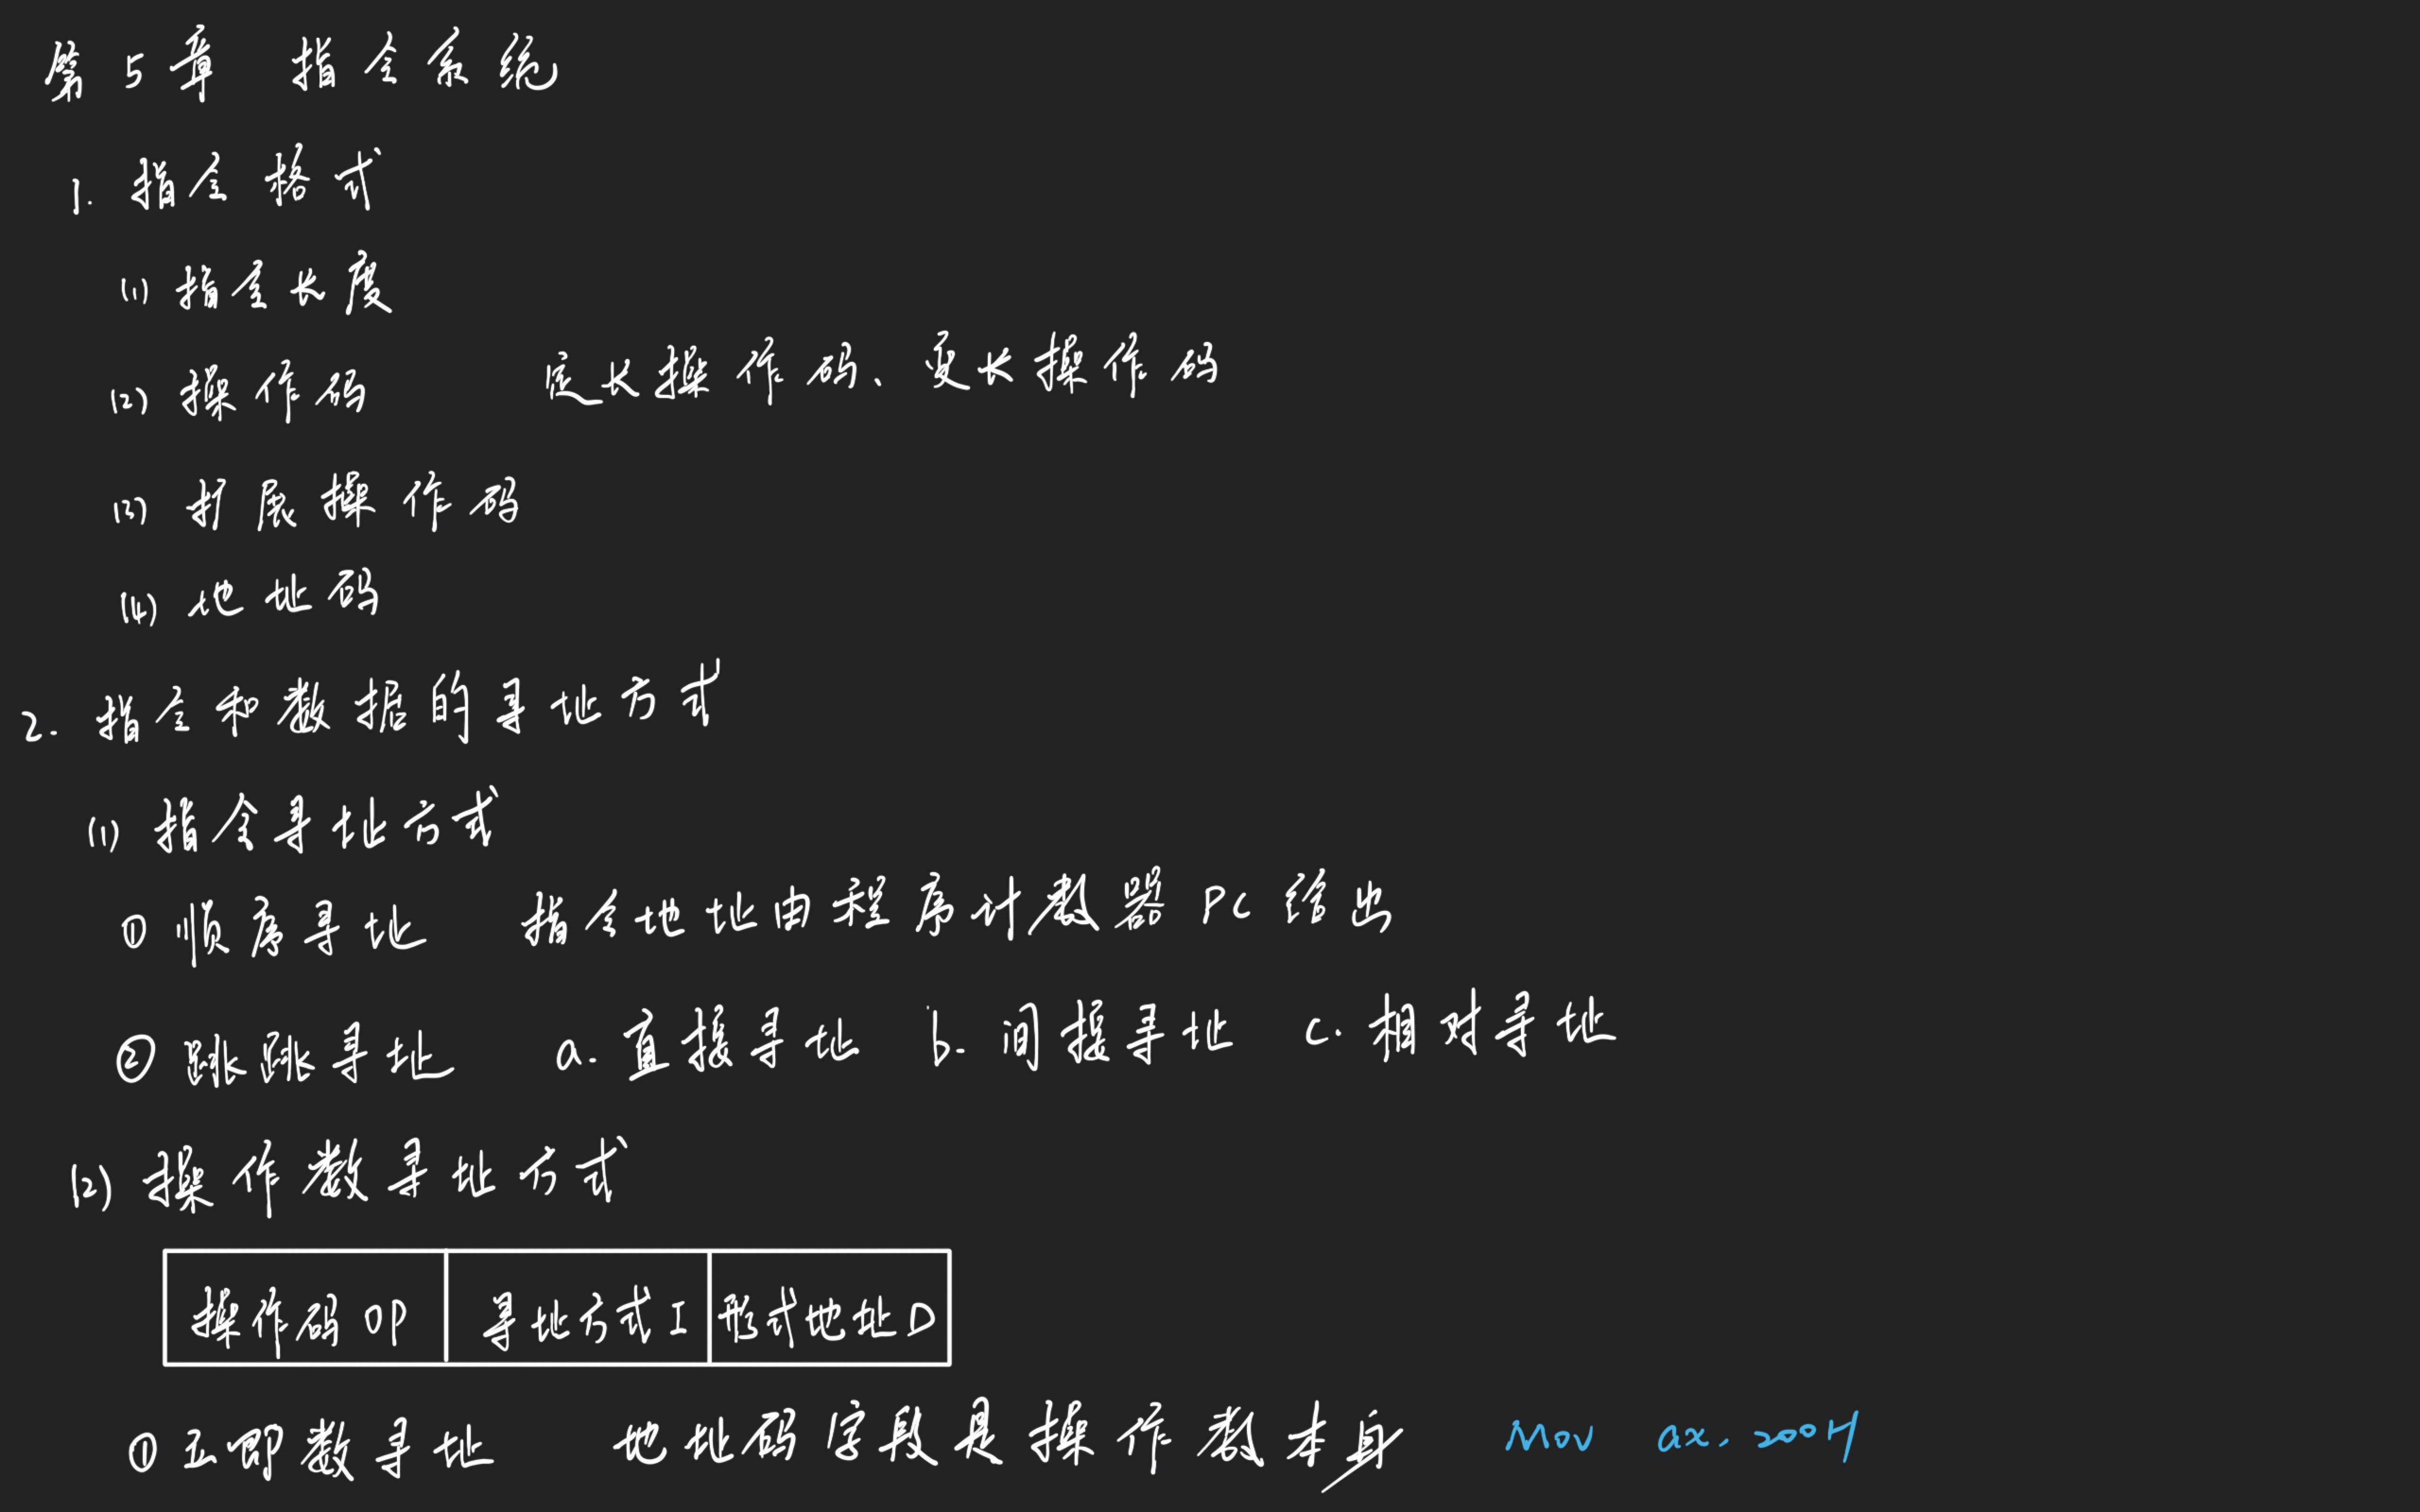 第5章 指令系统
1. 指令格式
(1) 指令长度
(2) 操作码 定长操作码、变长操作码
(3) 扩展操作码
(4) 地址码
2. 指令和数据的寻址方式
(1) 指令寻址方式
① 顺序寻址 指令地址由程序计数器PC给出
② 跳跳寻址 a. 直接寻址 b. 间接寻址 c. 相对寻址
(2) 操作数寻址方式
操作码OP 寻址方式I 形式地址D
① 立即数寻址 地址码字段是操作数本身 Mov ax, 200H